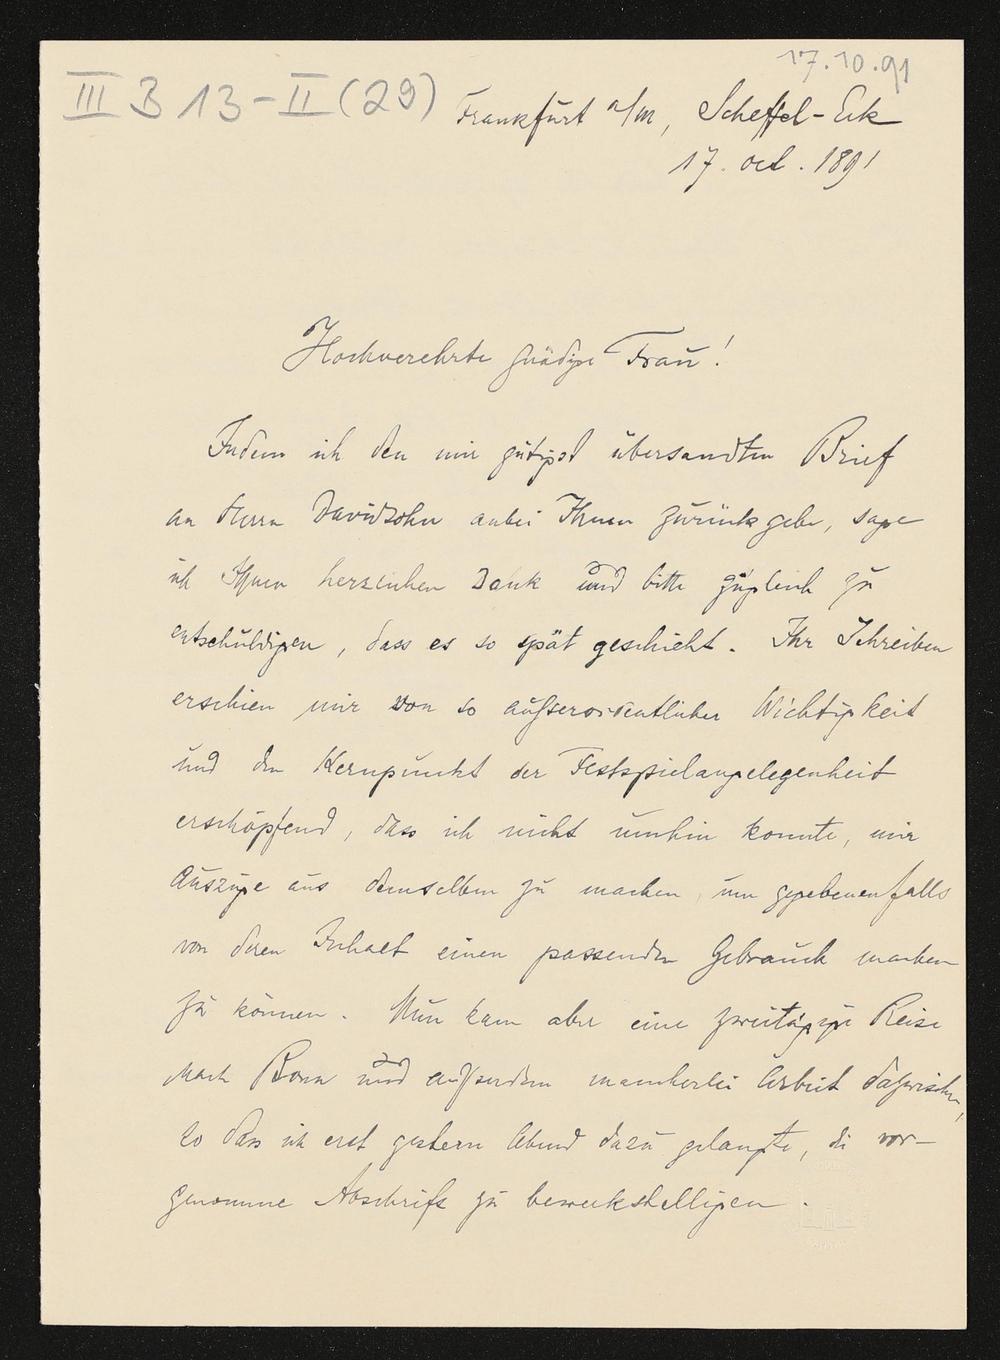 17.10.91
III B 13-II (29)
Frankfurt a/M, Scheffel-Eck
17. oct. 1891
Hochverehrte gnädige Frau!
Indem ich den mir gütigst übersandten Brief
an Herrn Davidsohn anbei Ihnen zurückgebe, sage
ich Ihnen herzlichen Dank und bitte zugleich zu
entschuldigen, dass es so spät geschieht. Ihr Schreiben
erschien mir von so außerordentlicher Wichtigkeit
und den Kernpunkt der Festspielangelegenheit
erschöpfend, dass ich nicht umhin konnte, mir
Auszüge aus demselben zu machen, um gegebenenfalls
von deren Inhalt einen passenden Gebrauch machen
zu können. Nun kam aber eine zweitägige Reise
nach Bonn und außerdem mancherlei Arbeit dazwischen,
so dass ich erst gestern Abend dazu gelangte, die vor-
genomme Abschrift zu bewerkstelligen.